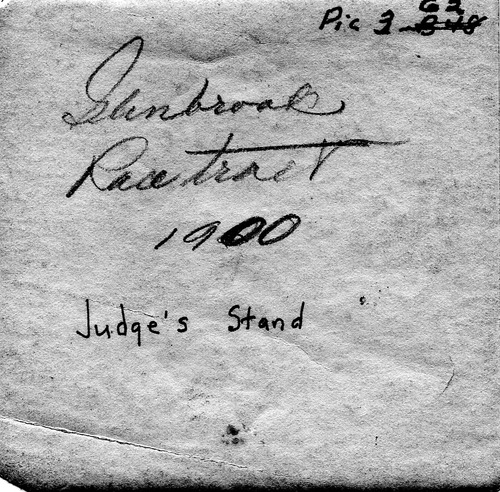 G2
Pic 3 B48
Glenbrook
Racetract
1900
Judge's Stand